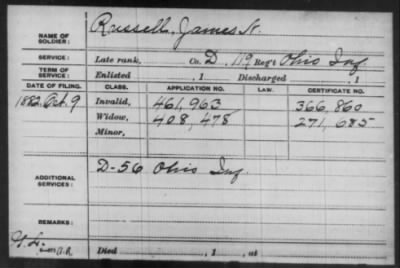 NAME OF SOLDIER: Russell, James N.
SERVICE: Late rank, Co. D, 119 Reg't Ohio Inf.
TERM OF SERVICE: Enlisted , 1 Discharged , 1
DATE OF FILING. CLASS. APPLICATION NO. LAW. CERTIFICATE NO.
1882, Oct. 9 Invalid, 461,963 366,860
Widow, 408,478 271,685
Minor,
ADDITIONAL SERVICES: D-56 Ohio Inf.
REMARKS:
Died , 1 , at